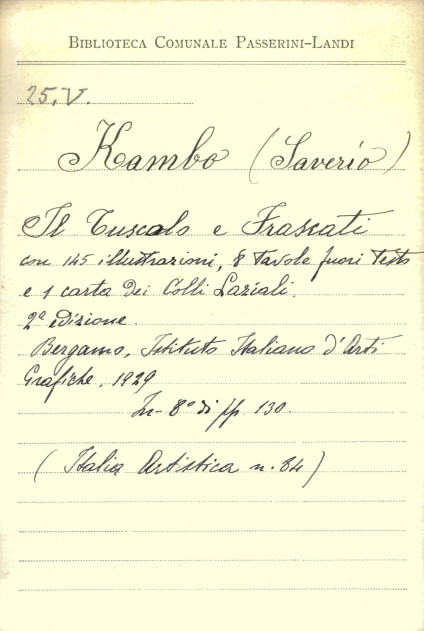 Biblioteca Comunale Passerini-Landi
25.V.
Kambo (Saverio)
Il Tuscolo e Frascati
con 145 illustrazioni, 8 tavole fuori testo
e 1 carta dei Colli Laziali.
2ª edizione.
Bergamo, Istituto Italiano d'Arti
Grafiche, 1929
In-8° di pp. 130.
(Italia Artistica n. 84)